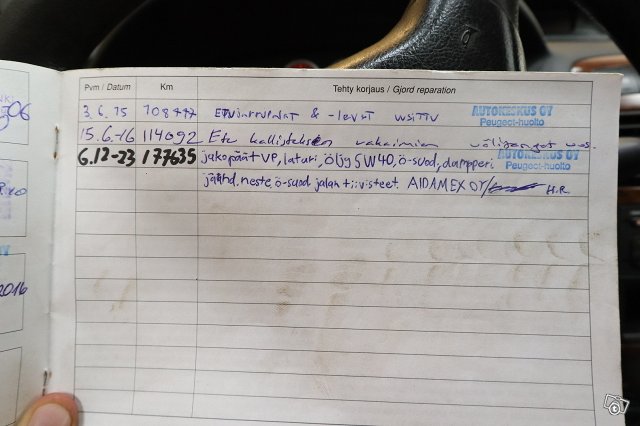 Pvm / Datum Km Tehty korjaus / Gjord reparation
3.6.15 108777 ETUJARRUPALAT & -LEVYT USITTU
AUTOKESKUS OY
Peugeot-huolto
15.6-16 114692 Etu kallistuksen vakaimien välitangot uus.
AUTOKESKUS OY
Peugeot-huolto
6.12-23 177635 jakopäät VP, laturi, öljy 5W40, ö-suod, dampperi
jäähd. neste, ö-suod jalan tiivisteet. AIDAMEX OY/ H.R
506
2016